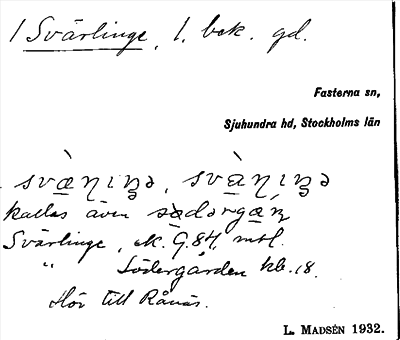 1 Svärlinge, 1. bok. gd.
Fasterna sn,
Sjuhundra hd, Stockholms län
svæ̀ηιŋə, svæ̀ηιŋə
kallas även sɷ̀dərgæ̨ɳ
Svärlinge, ek. G. 84, mtl.
" Södergården kb. 18.
Hör till Rånäs.
L. MADSÉN 1932.